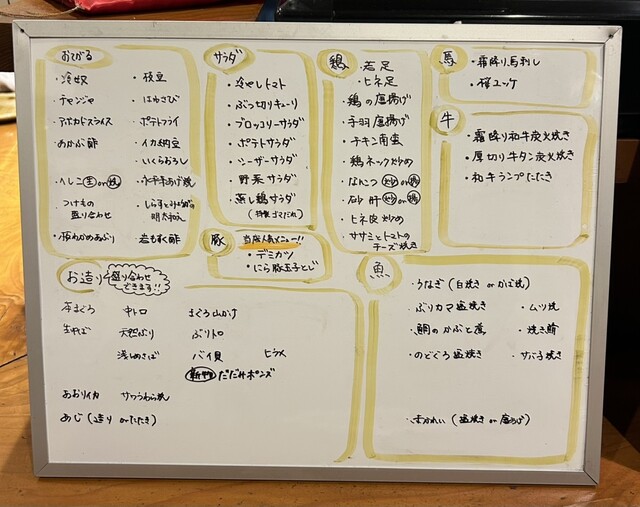 おてがる
・冷奴
・枝豆
・チャンジャ
・はねさび
・アボカドスライス
・ポテトフライ
・あかぶ酢
・イカ納豆
・いくらおろし
・へしこ(生)or(焼)
・水平本あげ焼
・つけもの
盛り合わせ
・しらすとみょうがの
明太和え
・板わかめあぶり
・岩もずく酢
サラダ
・冷やしトマト
・ぶつ切りキューリ
・ブロッコリーサラダ
・ポテトサラダ
・シーザーサラダ
・野菜サラダ
・蒸し鶏サラダ
(特製ゴマだれ)
鶏
・若足
・ヒネ足
・鶏の唐揚げ
・手羽唐揚げ
・チキン南蛮
・鶏ネック炒め
・なんこつ(炒)or(揚)
・砂肝(炒)or(揚)
・ヒネ皮炒め
・ササミとトマトの
チーズ焼き
馬
・霜降り馬刺し
・桜ユッケ
牛
・霜降り和牛炭火焼き
・厚切り牛タン炭火焼き
・和牛ランプたたき
豚
当店人気メニュー!!
・デミカツ
・にら豚玉子とじ
お造り
盛り合わせ
できます!!
本まぐろ
中トロ
まぐろ山かけ
生さば
天然ぶり
ぶりトロ
浅〆めさば
バイ貝
ヒラメ
新物
だだみポンズ
あおりイカ
サワラわら焼
あじ(造り or たたき)
魚
・うなぎ(白焼き or かば焼)
・ぶりカマ塩焼き
・ムツ焼
・鯛のかぶと煮
・焼き鯖
・のどぐろ塩焼き
・サバ子焼き
・まかれい(塩焼き or 唐あげ)